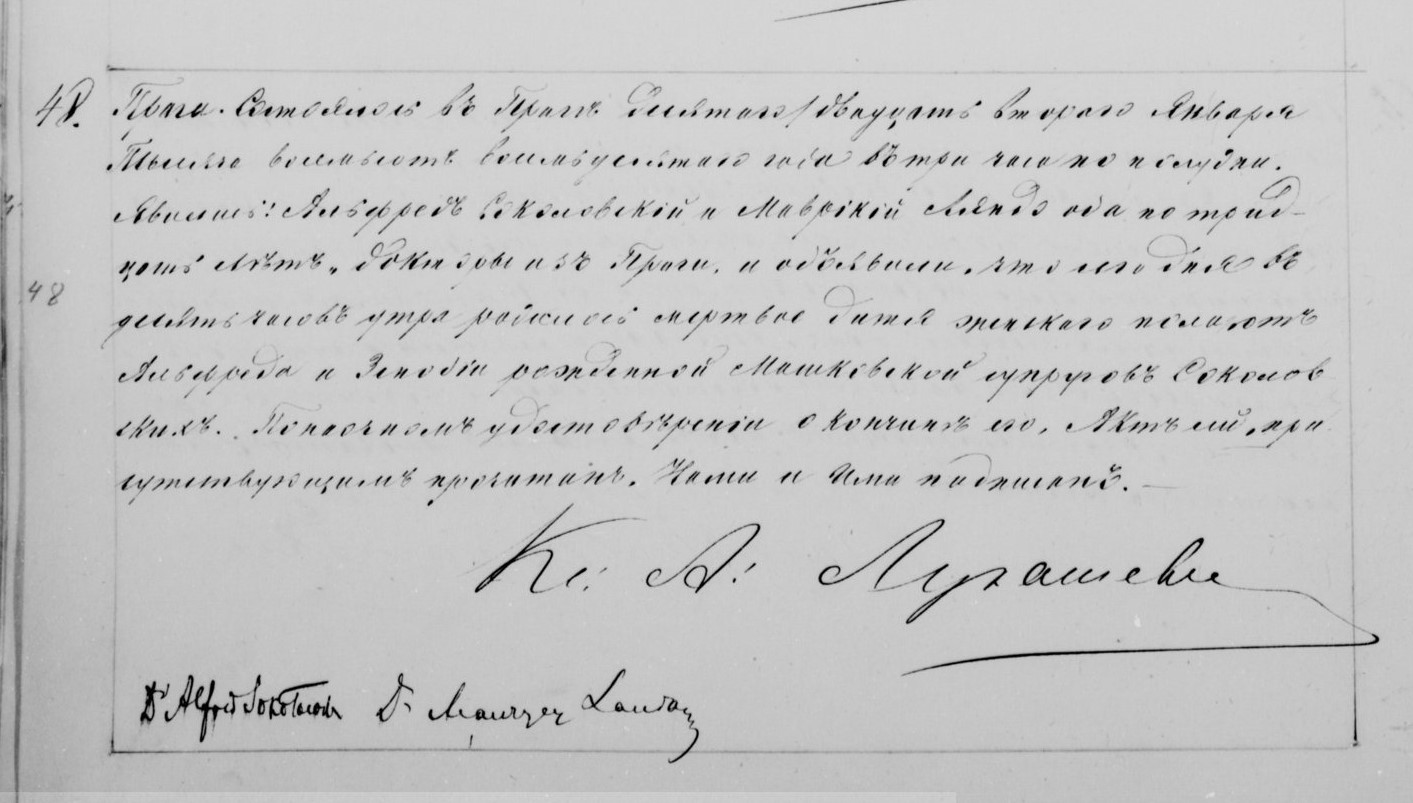 48. Прага. Состоялось въ Прагѣ десятаго/двадцать втораго Января
Тысяча восемьсотъ восемьдесятаго года въ три часа по полудни.
Явились: Альфредъ Соколовскій и Маврікій Ляндо оба по трид-
цать лѣтъ, докторы изъ Праги, и объявили, что сего дня въ
48
десять часовъ утра родилось мертвое дитя женскаго пола, отъ
Альфреда и Зенобіи рожденной Машковской супруговъ Соколов
скихъ. По наочномъ удостовѣреніи о кончинѣ его, Актъ сей, при
сутствующимъ прочитанъ. Нами и Ими подписанъ. —
Кс: А:
Dr Alfred Sokołowski Dr Maurycy Landau